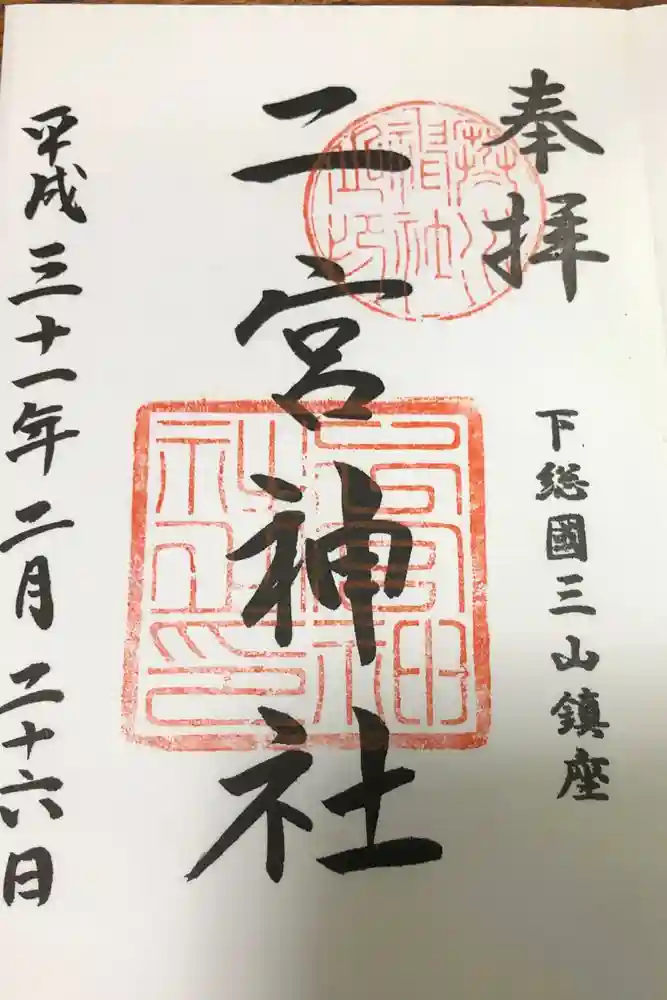 奉拝
下総國三山鎮座
二宮神社
平成三十一年二月二十六日